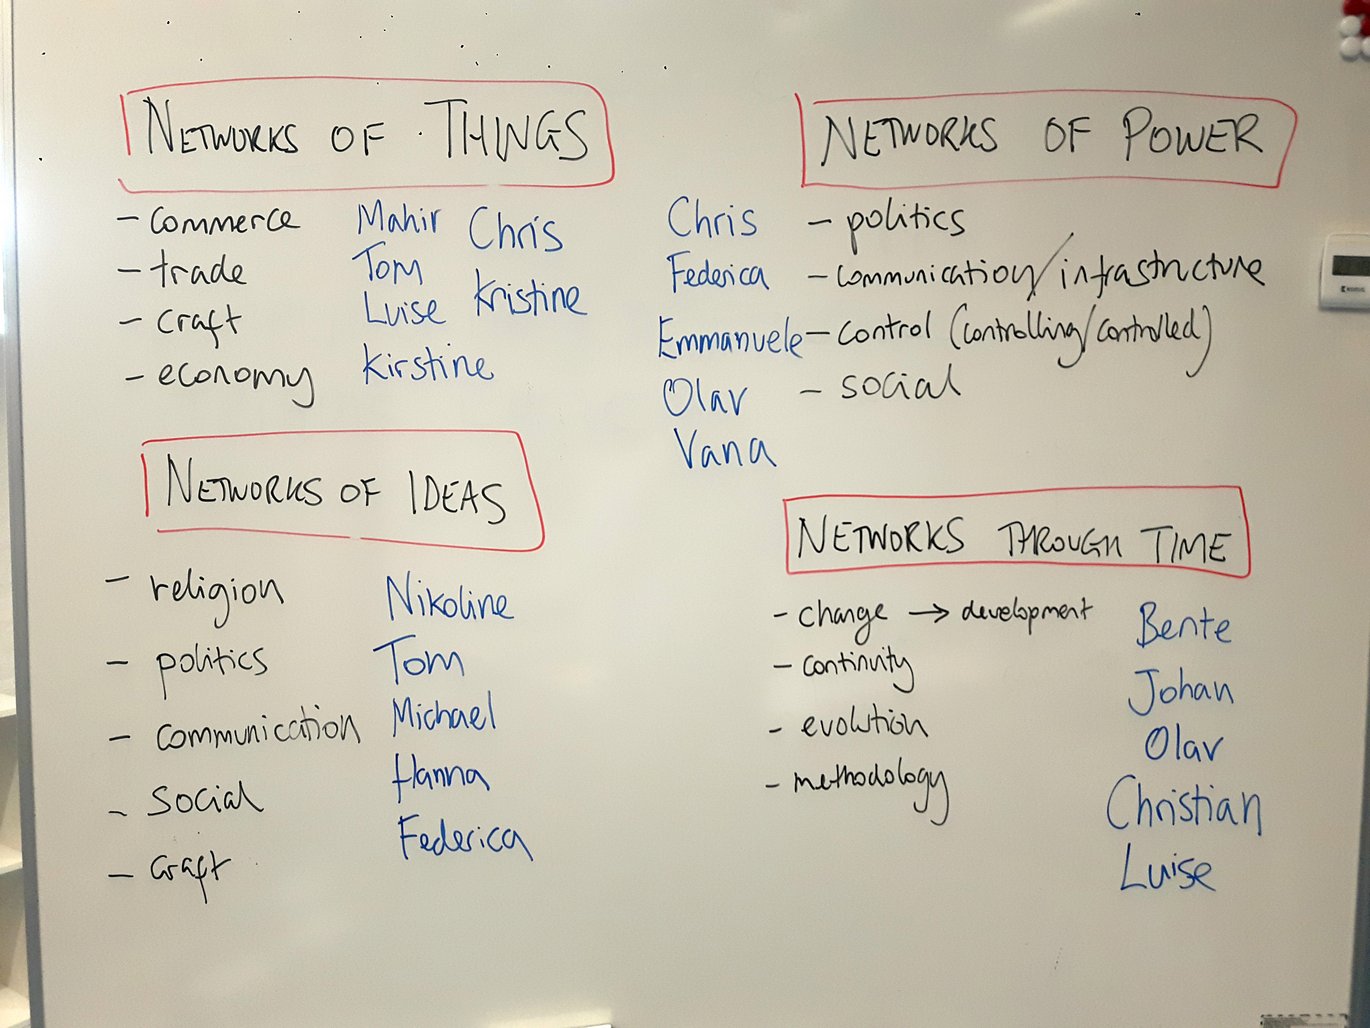 NETWORKS OF THINGS
- commerce
- trade
- craft
- economy
Mahir
Tom
Luise
Kirstine
Chris
Kristine
NETWORKS OF POWER
Chris
Federica
Emmanuele
Olav
Vana
- politics
- communication/infrastructure
- control (controlling/controlled)
- social
NETWORKS OF IDEAS
- religion
- politics
- communication
- social
- craft
Nikoline
Tom
Michael
Hanna
Federica
NETWORKS THROUGH TIME
- change → development
- continuity
- evolution
- methodology
Bente
Johan
Olav
Christian
Luise